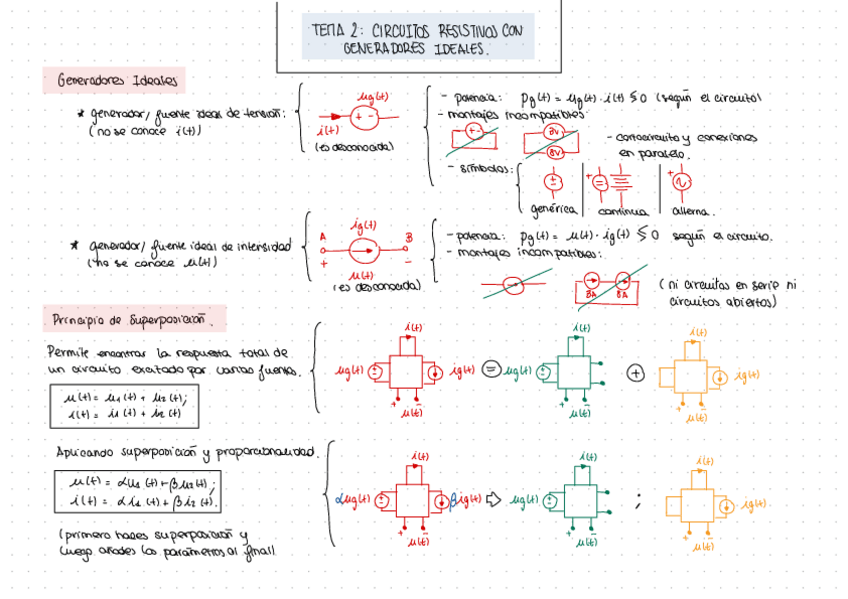 TEMA 2: CIRCUITOS RESISTIVOS CON
GENERADORES IDEALES.
Generadores Ideales
* generador/ fuente ideal de tensión:
(no se conoce i(t))
ug(t)
+ -
i(t)
(es desconocida)
- potencia: pg(t) = ug(t) · i(t) ≶ 0 (según el circuito)
- montajes incompatibles:
+ -
- cortocircuito y conexiones
en paralelo.
- símbolos:
genérica
continua
alterna.
* generador/ fuente ideal de intensidad
(no se conoce u(t))
ig(t)
A
B
+
-
u(t)
(es desconocida)
- potencia: pg(t) = u(t) · ig(t) ≶ 0 según el circuito.
- montajes incompatibles:
(ni circuitos en serie ni
circuitos abiertos)
Principio de Superposición.
Permite encontrar la respuesta total de
un circuito excitado por varias fuentes.
u(t) = u1(t) + u2(t);
i(t) = i1(t) + i2(t)
i(t)
ug(t)
ig(t)
+ -
u(t)
=
i(t)
ug(t)
+ -
u(t)
+
i(t)
ig(t)
+ -
u(t)
Aplicando superposición y proporcionalidad.
u(t) = αu1(t) + βu2(t);
i(t) = αi1(t) + βi2(t).
(primero haces superposición y
luego añades los parámetros al final)
i(t)
αug(t)
βig(t)
+ -
u(t)
i(t)
ug(t)
+ -
u(t)
;
i(t)
ig(t)
+ -
u(t)